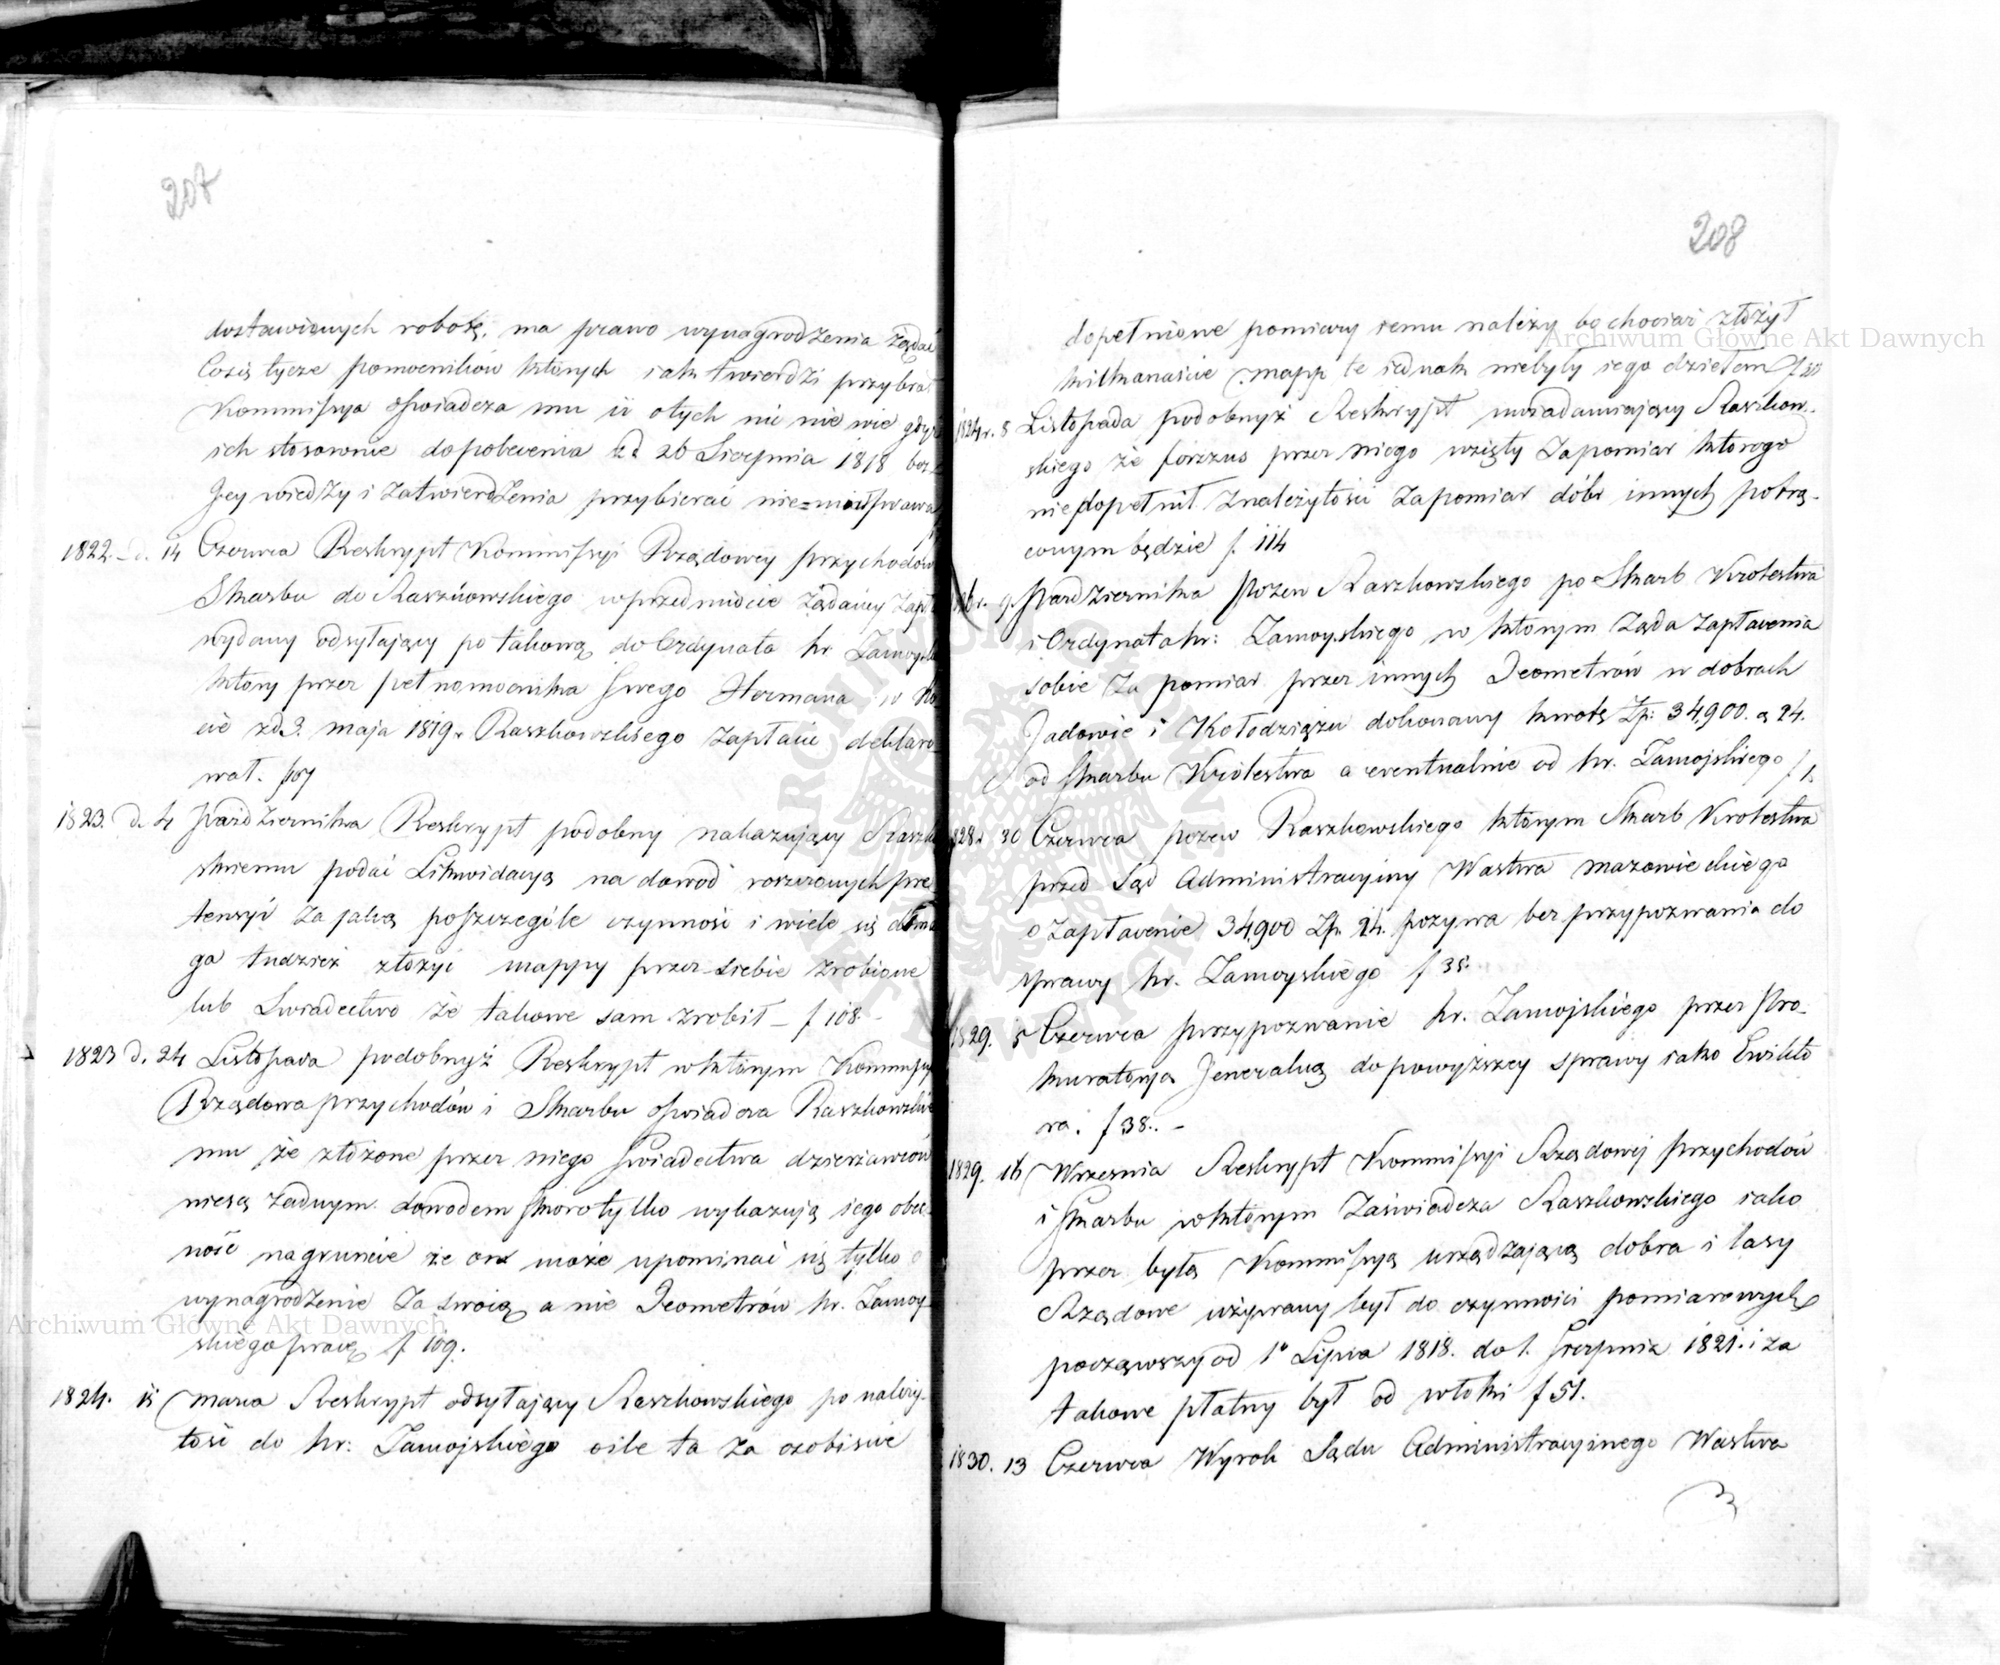 207
dostawionych robotę, ma prawo wynagrodzenia żądać
Cosię tycze pomocników których iak twierdzi przybrał
Kommissya oświadcza mu iż otych nic nie wie gdyż
ich stosownie do polecenia z d 26 Sierpnia 1818 bez
Jey wiedzy i zatwierdzenia przybierać nie=miał prawa
1822 d. 14 Czerwca Reskrypt Kommissyi Rządowey przychodów
Skarbu do Raszkowskiego wprzedmiocie żądaney
wydany odsyłający po takową do Ordynata hr. Zamoysk
który przez pełnomocnika swego Hermana w
cie zd 3. maja 1819 r Raszkowskiego zapłacić deklaro
wał. f 107
1823. d. 4 Października Reskrypt podobny nakazujący Raszko
skiemu podać Likwidacyą na dowód roszczonych pre
tensyi za jaką poszczególe czynność i wiele się doma
ga tudzież złożyć mappy przez siebie zrobione
lub Swiadectwo że takowe sam zrobił – f 108 –
1823 d. 24 Listopada podobnyż Reskrypt wktórym Kommissya
Rządowa przychodów i Skarbu oświadcza Raszkowskie
mu że złożone przez niego świadectwa dzierżawców
niesą żadnym dowodem skoro tylko wykazują iego obec
ność nagruncie że on może upominać się tylko o
wynagrodzenie za swoią a nie Jeometrów hr. Zamoy
skiego pracę f 109.
1824. 15 Marca Reskrypt odsyłający Raszkowskiego po należy
tość do hr: Zamojskiego oile ta za osobiście
208
dopełnione pomiary iemu należy bo chociaż złożył
kilkanaście mapp te iednak niebyły iego dziełem f
1824 r. 8 Listopada podobnyż Reskrypt uwiadamiający Raszkow-
skiego że forszus przez niego wzięty za pomiar którego
niedopełnił z należytości za pomiar dóbr innych potrą-
conym będzie f. 114
r. 9. Października Pozew Raszkowskiego po Skarb Krolestwa
i Ordynata hr: Zamoyskiego w którym żąda zapłacenia
sobie za pomiar przez innych Jeometrów w dobrach
Jadowie i Kołodziążu dokonany kwotę Zp: 34,900. g 24.
od Skarbu Krolestwa a ewentualnie od hr. Zamojskiego f 1.
1828 r 30 Czerwca pozew Raszkowskiego którym Skarb Krolestwa
przed Sąd Administracyiny Wøstwa mazowieckiego
o zapłacenie 34,900 Zp. 24. pozywa bez przypozwania do
sprawy hr. Zamoyskiego f 35.
1829. 5 Czerwca przypozwanie hr. Zamojskiego przez Pro-
kuratoryą Jeneralną do powyższey sprawy iako Ewikto
ra. f 38. –
1829. 16 Września Reskrypt Kommissyi Rządowej przychodów
i Skarbu wktórym Zaświadcza Raszkowskiego iako
przez byłą Kommissyą urządzającą dobra i lasy
Rządowe używany był do czynności pomiarowych
począwszy od 1º Lipca 1818. do 1. Sierpnia 1821. i za
takowe płatny był od włoki f 51.
1830. 13 Czerwca Wyrok Sądu Administracyinego Wøstwa
Archiwum Główne Akt Dawnych
Archiwum Główne Akt Dawnych